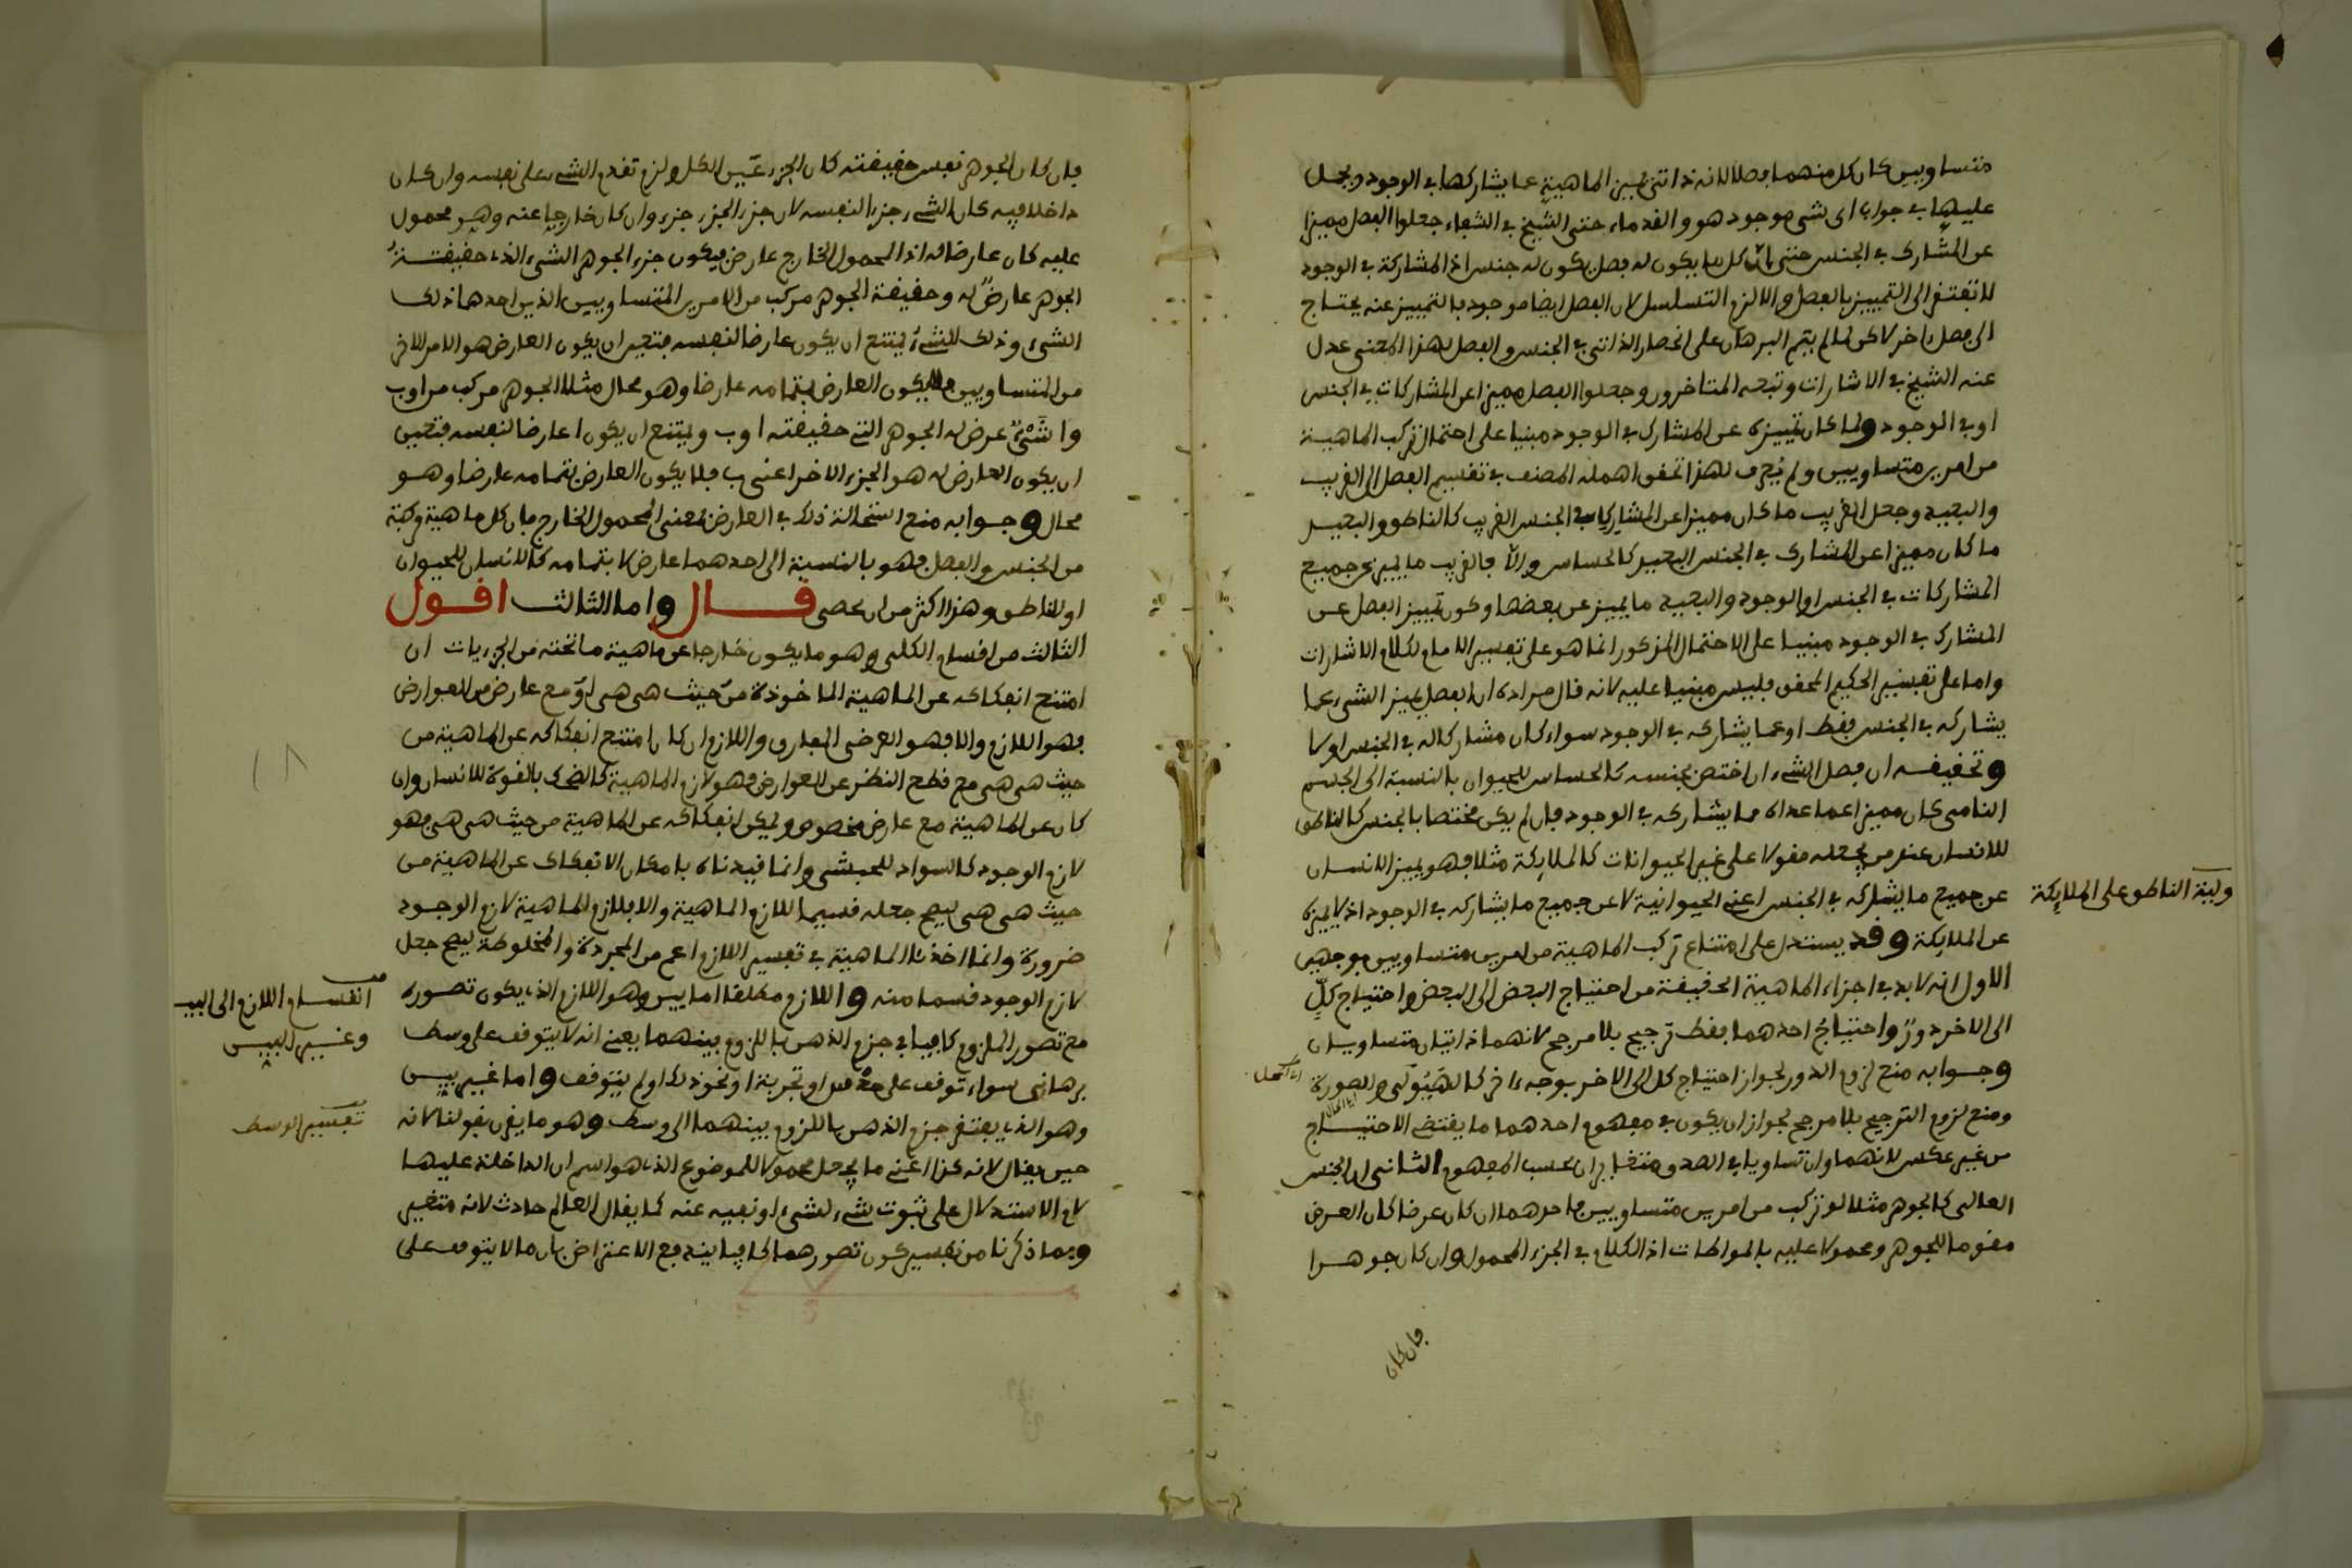 متساويين كان كل منهما فصلا لانه ذاتي يميز الماهية عما يشاركها في الوجود ويحمل
عليها في جواب اى شى موجود هو والقدماء حتى الشيخ في الشفاء جعلوا الفصل مميزا
عن المشارك في الجنس حتى بان كل ما يكون له فصل يكون له جنس اذ المشاركة في الوجود
لا تفتقر الى التمييز بالفصل والا لزم التسلسل لان الفصل ايضا موجود بالتمييز عنه يحتاج
الى فصل اخر لاكن لما لم يتم البرهان على انحصار الذاتى في الجنس والفصل بهذا المعنى عدل
عنه الشيخ في الاشارات وتبعه المتاخرون وجعلوا الفصل مميزا عن المشاركات في الجنس
او في الوجود ولما كان تمييزه عن المشارك في الوجود مبنيا على احتمال تركب الماهية
من امرين متساويين ولم يعرف لهذا تحقق اهمله المصنف في تقسيم الفصل الى القريب
والبعيد وجعل القريب ما كان مميزا عن المشاركات في الجنس القريب كالناطق والبعيد
ما كان مميزا عن المشارك في الجنس البعيد كالحساس والا فالقريب ما يميز عن جميع
المشاركات في الجنس او الوجود والبعيد ما يميز عن بعضها وكون تمييز الفصل عن
المشارك في الوجود مبنيا على الاحتمال المذكور انما هو على تفسير الامام لكلام الاشارات
واما على تفسير الحكيم المحقق فليس مبنيا عليه لانه قال مراده ان الفصل يميز الشىء عما
يشاركه في الجنس فقط او عما يشاركه في الوجود سواء كان مشاركا له في الجنس او لا
وتحقيقه ان فصل الشىء ان اختص بجنسه كالحساس للحيوان بالنسبة الى الجسم
النامى كان مميزا عما عداه مما يشاركه في الوجود فان لم يكن مختصا بالجنس كالناطق
للانسان عند من يجعله مقولا على غير الحيوانات كالملايكة مثلا فهو يميز الانسان
عن جميع ما يشاركه في الجنس اعنى الحيوانية لا عن جميع ما يشاركه في الوجود اذ لا يميزه
عن الملايكة وقد يستدل على امتناع تركب الماهية من امرين متساويين بوجهين
الاول انه لا بد في اجزاء الماهية الحقيقة من احتياج البعض الى البعض واحتياج كل
الى الاخر دور واحتياج احدهما فقط ترجيح بلا مرجح لانهما ذاتيان متساويان
وجوابه منع لزوم الدور لجواز احتياج كل الى الاخر بوجه اخر كالهيولى والصورة
ومنع لزوم الترجيح بلا مرجح لجواز ان يكون في مفهوم احدهما ما يقتضى الاحتياج
من غير عكس لانهما وان تساويا في الصدق متغايران بحسب المفهوم الثانى ان الجنس
العالى كالجوهر مثلا لو تركب من امرين متساويين فاحدهما ان كان عرضا كان العرض
مقوما للجوهر ومحمولا عليه بالمواطات اذ الكلام في الجزء المحمول وان كان جوهرا
فان كان
ولية الناطق على الملايكة
فان كان الجوهر نفس حقيقته كان الجزء عين الكل ولزم تقدم الشىء على نفسه وان كان
داخلا فيه كان الشىء جزءا لنفسه لان جزء الجزء جزء وان كان خارجا عنه وهو محمول
عليه كان عارضا له اذ المحمول الخارج عارض فيكون جزء الجوهر الشىء الذى حقيقته
الجوهر عارض له وحقيقة الجوهر مركب من الامرين المتساويين الذين احدهما ذلك
الشىء وذلك الشىء يمتنع ان يكون عارضا لنفسه فتعين ان يكون العارض هو الامر الاخر
من المتساويين فلا يكون العارض بتمامه عارضا وهو محال مثلا الجوهر مركب من ا و ب
و ا شىء عرض له الجوهر التى حقيقته ا و ب ويمتنع ان يكون ا عارضا لنفسه فتعين
ان يكون العارض له هو الجزء الاخر اعنى ب فلا يكون العارض بتمامه عارضا وهو
محال وجوابه منع استحالة ذلك في العارض بمعنى المحمول الخارج فان كل ماهية مركبة
من الجنس والفصل فهو بالنسبة الى احدهما عارض لا بتمامه كالانسان للحيوان
او للناطق وهذا اكثر من ان يحصى قال واما الثالث اقول
الثالث من اقسام الكلى وهو ما يكون خارجا عن ماهية ما تحته من الجزءيات ان
امتنع انفكاكه عن الماهية الماخوذة من حيث هى هى او مع عارض من العوارض
فهو اللازم والا فهو العرضى المفارق واللازم ان كان امتنع انفكاكه عن الماهية من
حيث هى هى مع قطع النظر عن العوارض فهو لازم الماهية كالضحك بالقوة للانسان وان
كان عن الماهية مع عارض مخصوص ويمكن انفكاكه عن الماهية من حيث هى هى فهو
لازم الوجود كالسواد للحبشى وانما قيدناه بامكان الانفكاك عن الماهية من
حيث هى هى ليصح جعله قسيما للازم الماهية والا فلازم الماهية لازم الوجود
ضرورة وانما اخذنا الماهية في تفسير اللازم اعم من المجردة والمخلوطة ليصح جعل
لازم الوجود قسما منه واللازم مطلقا اما بين وهو اللازم الذى يكون تصوره
مع تصور الملزوم كافيا في جزم الذهن باللزوم بينهما يعنى انه لا يتوقف على وسط
برهانى سواء توقف على حدس او تجربة او نحو ذلك او لم يتوقف واما غير بين
وهو الذى يفتقر جزم الذهن باللزوم بينهما الى وسط وهو ما يقرن بقولنا لانه
حين يقال لانه كذا اعنى ما يجعل محمولا للموضوع الذى هو اسم ان الداخلة عليها
لام الاستدلال على ثبوت شىء لشىء او نفيه عنه كما يقال العالم حادث لانه متغير
وبما ذكرنا من تفسير كون تصورهما كافيا يندفع الاعتراض بان ما لا يتوقف على
انقسام اللازم الى البين
وغير البين
تفسير الوسط